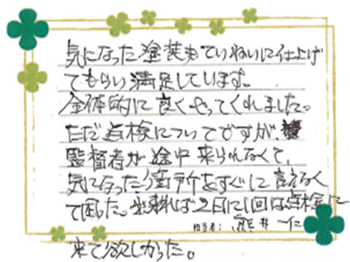 気になった塗装もていねいに仕上げ
てもらい満足しています。
全体的に良くやってくれました。
ただ点検についてですが、
監督者が途中来られなくて、
気になった箇所をすぐに言えなく
て困った。出来れば2日に1回は点検に
来て欲しかった。